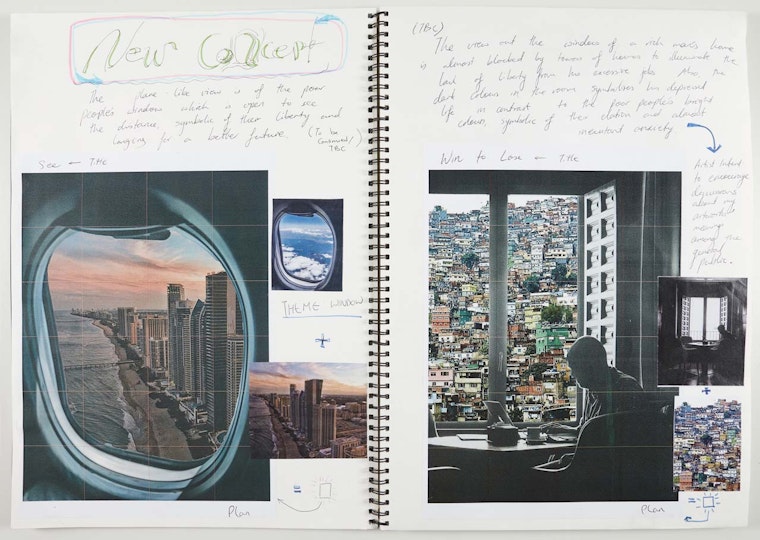 New Concept
The plane-like view is of the poor
people's window which is open to see
the distance, symbolic of their liberty and
longing for a better future. (To be
Continued/
TBC)
See ← Title
THEME WINDOW
+
=
Plan
(TBC)
The view out the window of a rich man's home
is almost blocked by towers of houses to illuminate the
lack of liberty from his excessive jobs. Also, the
dark colours in the room symbolises his deprived
life in contrast to the poor people's bright
colour, symbolic of their elation and almost
anxiety
Win to Lose ← Title
Artist Intent:
to encourage
discussions
about my
artwork's
meaning
among the
general
public.
+
=
Plan